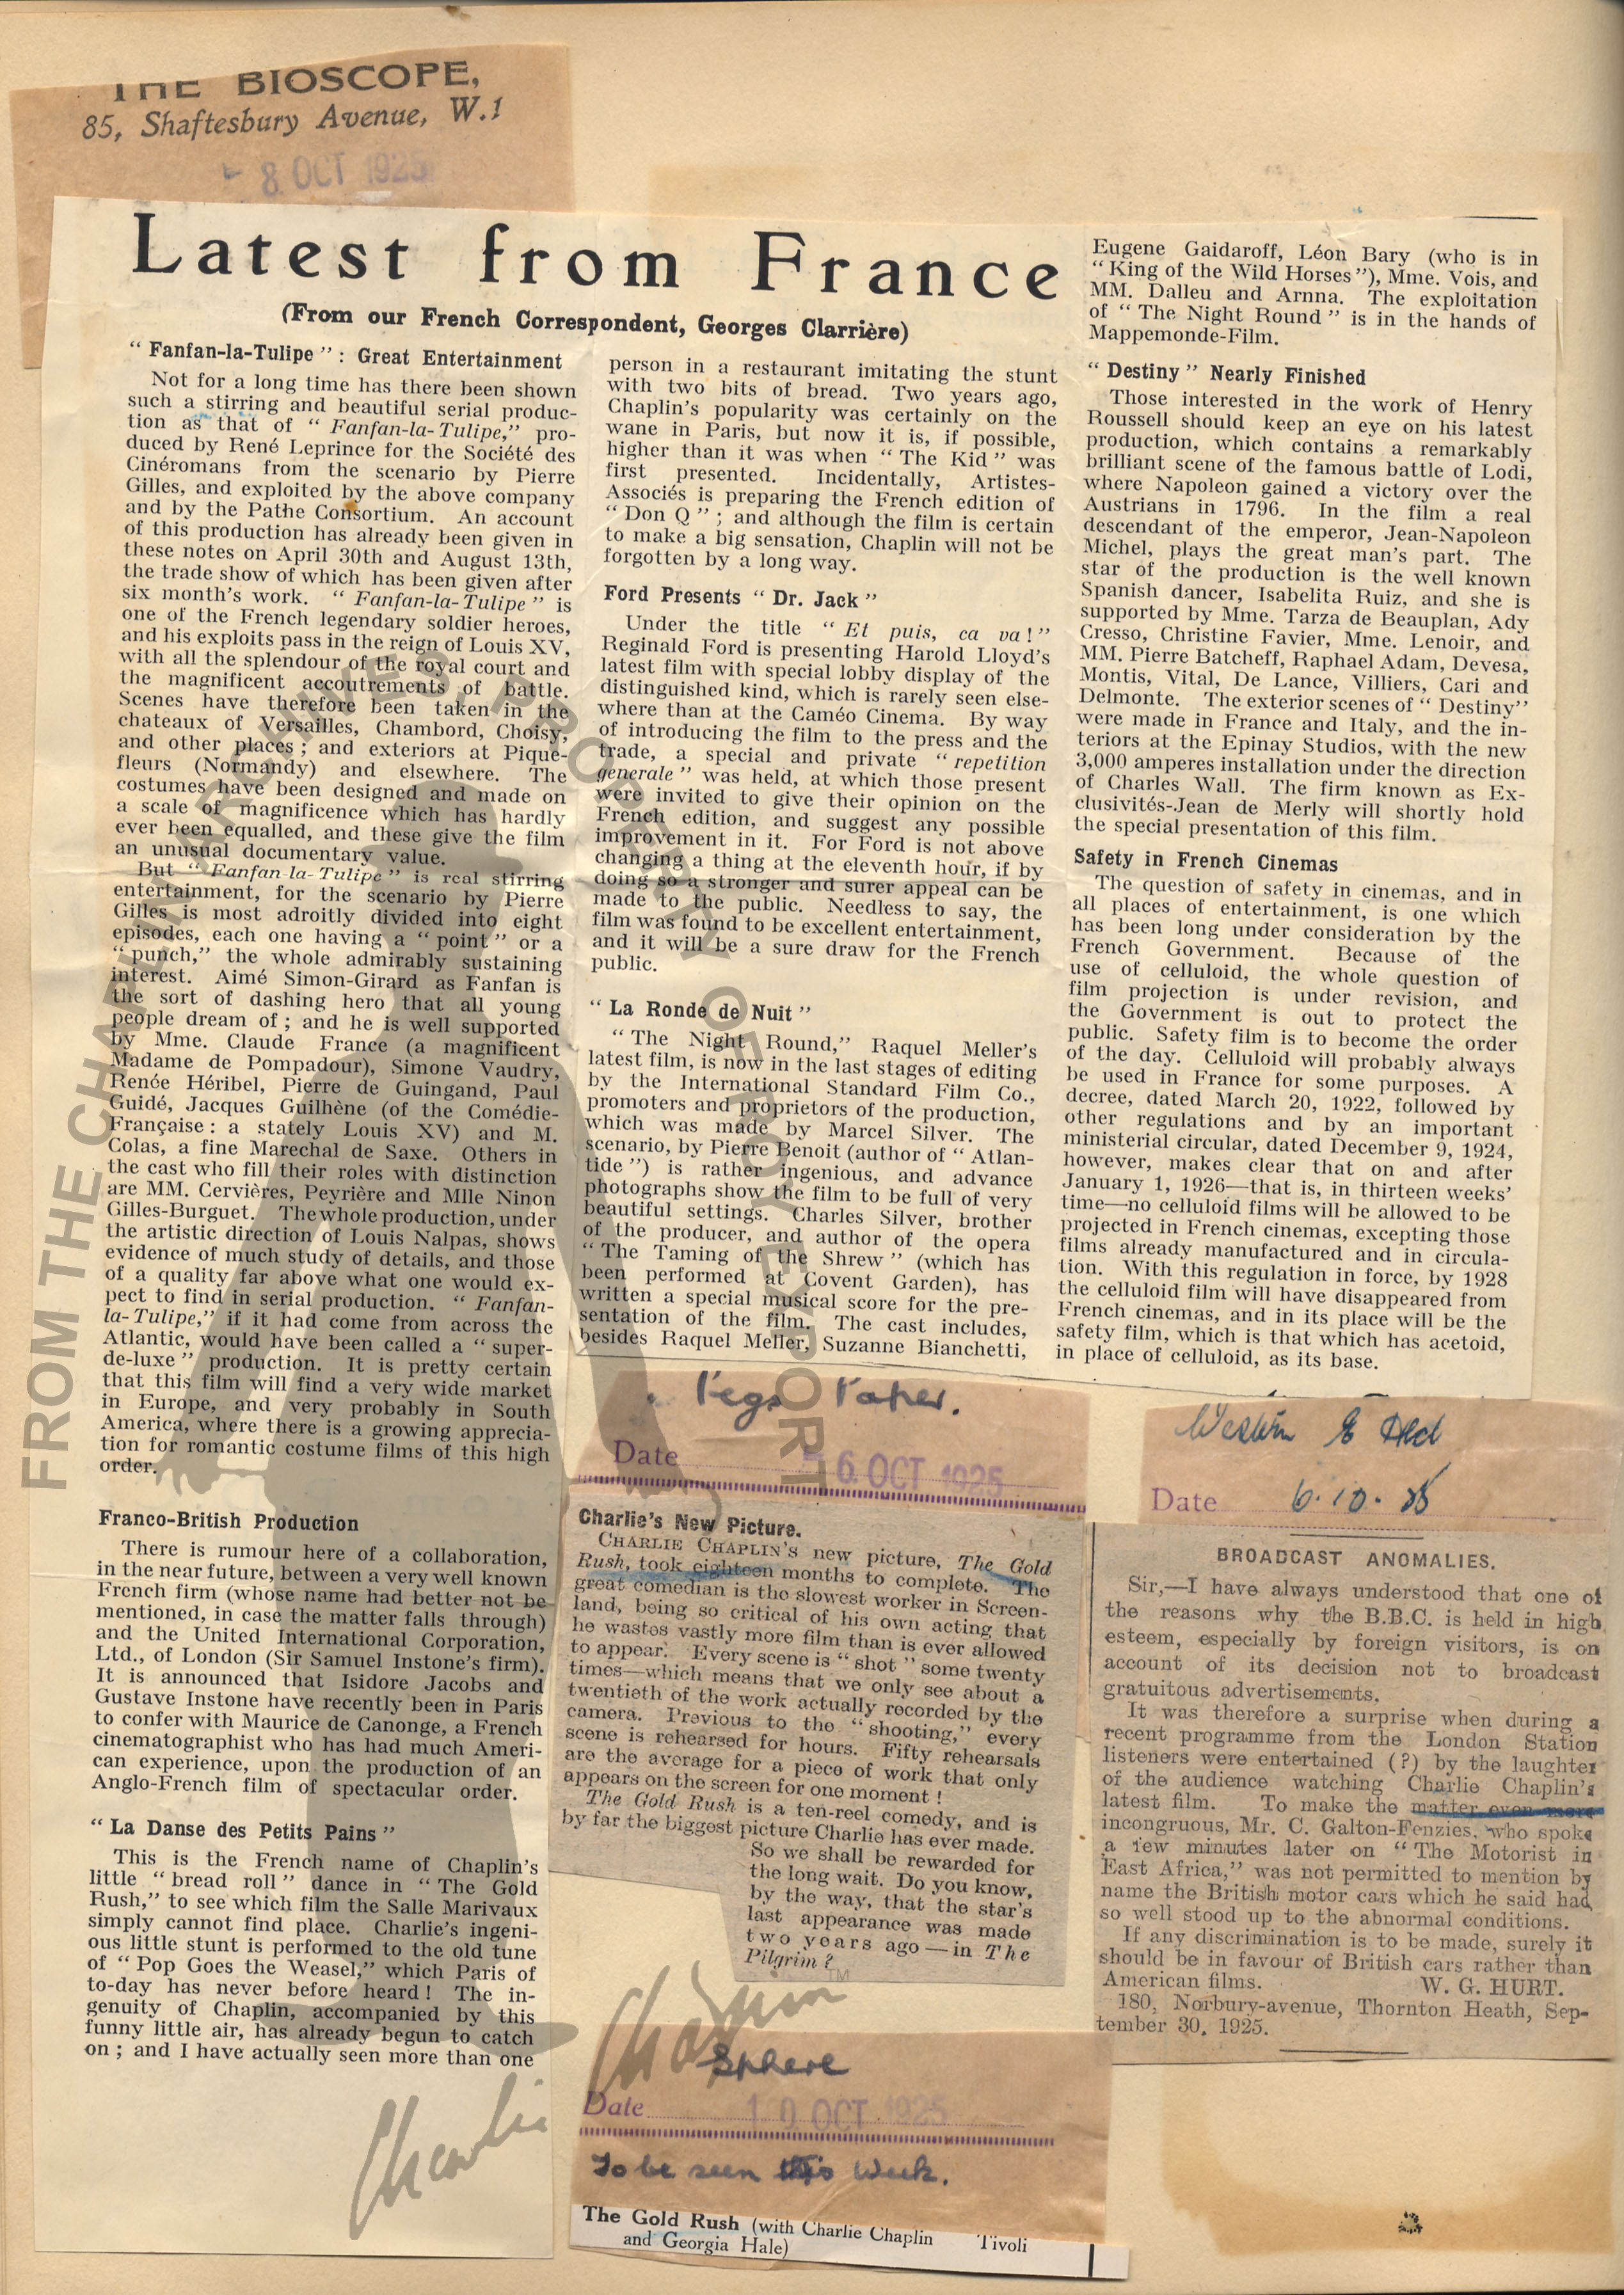 THE BIOSCOPE,
85, Shaftesbury Avenue, W.1
8 OCT 1925
Latest from France
(From our French Correspondent, Georges Clarrière)
“ Fanfan-la-Tulipe ” : Great Entertainment
Not for a long time has there been shown
such a stirring and beautiful serial produc-
tion as that of “ Fanfan-la-Tulipe,” pro-
duced by René Leprince for the Société des
Cinéromans from the scenario by Pierre
Gilles, and exploited by the above company
and by the Pathe Consortium. An account
of this production has already been given in
these notes on April 30th and August 13th,
the trade show of which has been given after
six month's work. “ Fanfan-la-Tulipe ” is
one of the French legendary soldier heroes,
and his exploits pass in the reign of Louis XV,
with all the splendour of the royal court and
the magnificent accoutrements of battle.
Scenes have therefore been taken in the
chateaux of Versailles, Chambord, Choisy,
and other places ; and exteriors at Pique-
fleurs (Normandy) and elsewhere. The
costumes have been designed and made on
a scale of magnificence which has hardly
ever been equalled, and these give the film
an unusual documentary value.
But “ Fanfan-la-Tulipe ” is real stirring
entertainment, for the scenario by Pierre
Gilles is most adroitly divided into eight
episodes, each one having a “ point ” or a
“ punch,” the whole admirably sustaining
interest. Aimé Simon-Girard as Fanfan is
the sort of dashing hero that all young
people dream of ; and he is well supported
by Mme. Claude France (a magnificent
Madame de Pompadour), Simone Vaudry,
Renée Héribel, Pierre de Guingand, Paul
Guidé, Jacques Guilhène (of the Comédie-
Française : a stately Louis XV) and M.
Colas, a fine Marechal de Saxe. Others in
the cast who fill their roles with distinction
are MM. Cervières, Peyrière and Mlle Ninon
Gilles-Burguet. The whole production, under
the artistic direction of Louis Nalpas, shows
evidence of much study of details, and those
of a quality far above what one would ex-
pect to find in serial production. “ Fanfan-
la-Tulipe,” if it had come from across the
Atlantic, would have been called a “ super-
de-luxe ” production. It is pretty certain
that this film will find a very wide market
in Europe, and very probably in South
America, where there is a growing apprecia-
tion for romantic costume films of this high
order.
Franco-British Production
There is rumour here of a collaboration,
in the near future, between a very well known
French firm (whose name had better not be
mentioned, in case the matter falls through)
and the United International Corporation,
Ltd., of London (Sir Samuel Instone's firm).
It is announced that Isidore Jacobs and
Gustave Instone have recently been in Paris
to confer with Maurice de Canonge, a French
cinematographist who has had much Ameri-
can experience, upon the production of an
Anglo-French film of spectacular order.
“ La Danse des Petits Pains ”
This is the French name of Chaplin's
little “ bread roll ” dance in “ The Gold
Rush,” to see which film the Salle Marivaux
simply cannot find place. Charlie's ingeni-
ous little stunt is performed to the old tune
of “ Pop Goes the Weasel,” which Paris of
to-day has never before heard ! The in-
genuity of Chaplin, accompanied by this
funny little air, has already begun to catch
on ; and I have actually seen more than one
person in a restaurant imitating the stunt
with two bits of bread. Two years ago,
Chaplin's popularity was certainly on the
wane in Paris, but now it is, if possible,
higher than it was when “ The Kid ” was
first presented. Incidentally, Artistes-
Associés is preparing the French edition of
“ Don Q ” ; and although the film is certain
to make a big sensation, Chaplin will not be
forgotten by a long way.
Ford Presents “ Dr. Jack ”
Under the title “ Et puis, ca va ! ”
Reginald Ford is presenting Harold Lloyd's
latest film with special lobby display of the
distinguished kind, which is rarely seen else-
where than at the Caméo Cinema. By way
of introducing the film to the press and the
trade, a special and private “ repetition
generale ” was held, at which those present
were invited to give their opinion on the
French edition, and suggest any possible
improvement in it. For Ford is not above
changing a thing at the eleventh hour, if by
doing so a stronger and surer appeal can be
made to the public. Needless to say, the
film was found to be excellent entertainment,
and it will be a sure draw for the French
public.
“ La Ronde de Nuit ”
“ The Night Round,” Raquel Meller's
latest film, is now in the last stages of editing
by the International Standard Film Co.,
promoters and proprietors of the production,
which was made by Marcel Silver. The
scenario, by Pierre Benoit (author of “ Atlan-
tide ”) is rather ingenious, and advance
photographs show the film to be full of very
beautiful settings. Charles Silver, brother
of the producer, and author of the opera
“ The Taming of the Shrew ” (which has
been performed at Covent Garden), has
written a special musical score for the pre-
sentation of the film. The cast includes,
besides Raquel Meller, Suzanne Bianchetti,
Eugene Gaidaroff, Léon Bary (who is in
“ King of the Wild Horses ”), Mme. Vois, and
MM. Dalleu and Arnna. The exploitation
of “ The Night Round ” is in the hands of
Mappemonde-Film.
“ Destiny ” Nearly Finished
Those interested in the work of Henry
Roussell should keep an eye on his latest
production, which contains a remarkably
brilliant scene of the famous battle of Lodi,
where Napoleon gained a victory over the
Austrians in 1796. In the film a real
descendant of the emperor, Jean-Napoleon
Michel, plays the great man's part. The
star of the production is the well known
Spanish dancer, Isabelita Ruiz, and she is
supported by Mme. Tarza de Beauplan, Ady
Cresso, Christine Favier, Mme. Lenoir, and
MM. Pierre Batcheff, Raphael Adam, Devesa,
Montis, Vital, De Lance, Villiers, Cari and
Delmonte. The exterior scenes of “ Destiny”
were made in France and Italy, and the in-
teriors at the Epinay Studios, with the new
3,000 amperes installation under the direction
of Charles Wall. The firm known as Ex-
clusivités-Jean de Merly will shortly hold
the special presentation of this film.
Safety in French Cinemas
The question of safety in cinemas, and in
all places of entertainment, is one which
has been long under consideration by the
French Government. Because of the
use of celluloid, the whole question of
film projection is under revision, and
the Government is out to protect the
public. Safety film is to become the order
of the day. Celluloid will probably always
be used in France for some purposes. A
decree, dated March 20, 1922, followed by
other regulations and by an important
ministerial circular, dated December 9, 1924,
however, makes clear that on and after
January 1, 1926—that is, in thirteen weeks'
time—no celluloid films will be allowed to be
projected in French cinemas, excepting those
films already manufactured and in circula-
tion. With this regulation in force, by 1928
the celluloid film will have disappeared from
French cinemas, and in its place will be the
safety film, which is that which has acetoid,
in place of celluloid, as its base.
Pegs Paper.
Date 6 OCT 1925
Charlie's New Picture.
CHARLIE CHAPLIN'S new picture, The Gold
Rush, took eighteen months to complete. The
great comedian is the slowest worker in Screen-
land, being so critical of his own acting that
he wastes vastly more film than is ever allowed
to appear. Every scene is “ shot ” some twenty
times—which means that we only see about a
twentieth of the work actually recorded by the
camera. Previous to the “ shooting,” every
scene is rehearsed for hours. Fifty rehearsals
are the average for a piece of work that only
appears on the screen for one moment !
The Gold Rush is a ten-reel comedy, and is
by far the biggest picture Charlie has ever made.
So we shall be rewarded for
the long wait. Do you know,
by the way, that the star's
last appearance was made
two years ago — in The
Pilgrim ?
Sphere
Date 10 OCT 1925
To be seen this Week.
The Gold Rush (with Charlie Chaplin Tivoli
and Georgia Hale)
Western
Date 6.10.25
BROADCAST ANOMALIES.
Sir,—I have always understood that one of
the reasons why the B.B.C. is held in high
esteem, especially by foreign visitors, is on
account of its decision not to broadcast
gratuitous advertisements.
It was therefore a surprise when during a
recent programme from the London Station
listeners were entertained (?) by the laughter
of the audience watching Charlie Chaplin's
latest film. To make the matter even more
incongruous, Mr. C. Galton-Fenzies, who spoke
a few minutes later on “ The Motorist in
East Africa,” was not permitted to mention by
name the British motor cars which he said had
so well stood up to the abnormal conditions.
If any discrimination is to be made, surely it
should be in favour of British cars rather than
American films. W. G. HURT.
180, Norbury-avenue, Thornton Heath, Sep-
tember 30, 1925.
FROM THE CHAPLIN ARCHIVES. PROPERTY OF ROY EXPORT
Charlie Chaplin TM